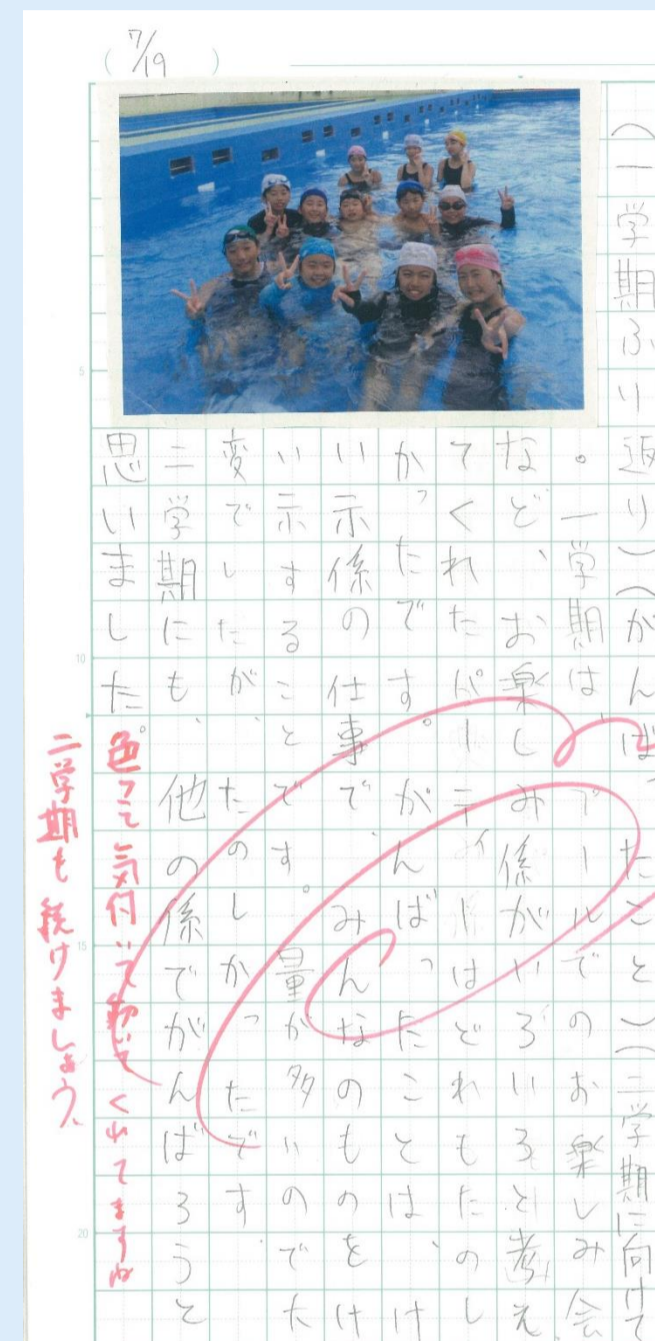 7/19
（一学期ふり返り）（がんばったこと）（二学期に向けて
。一学期は、プールでのお楽しみ会
など、お楽しみ係がいろいろと考え
てくれたパーティーはどれもたのし
かったです。がんばったことは、け
い示係の仕事で、みんなのものをけ
い示することです。量が多いので大
変でしたが、たのしかったです。
二学期にも、他の係でがんばろうと
思いました。
色々と気付いて動いてくれてますね
二学期も続けましょう。
5
10
15
20